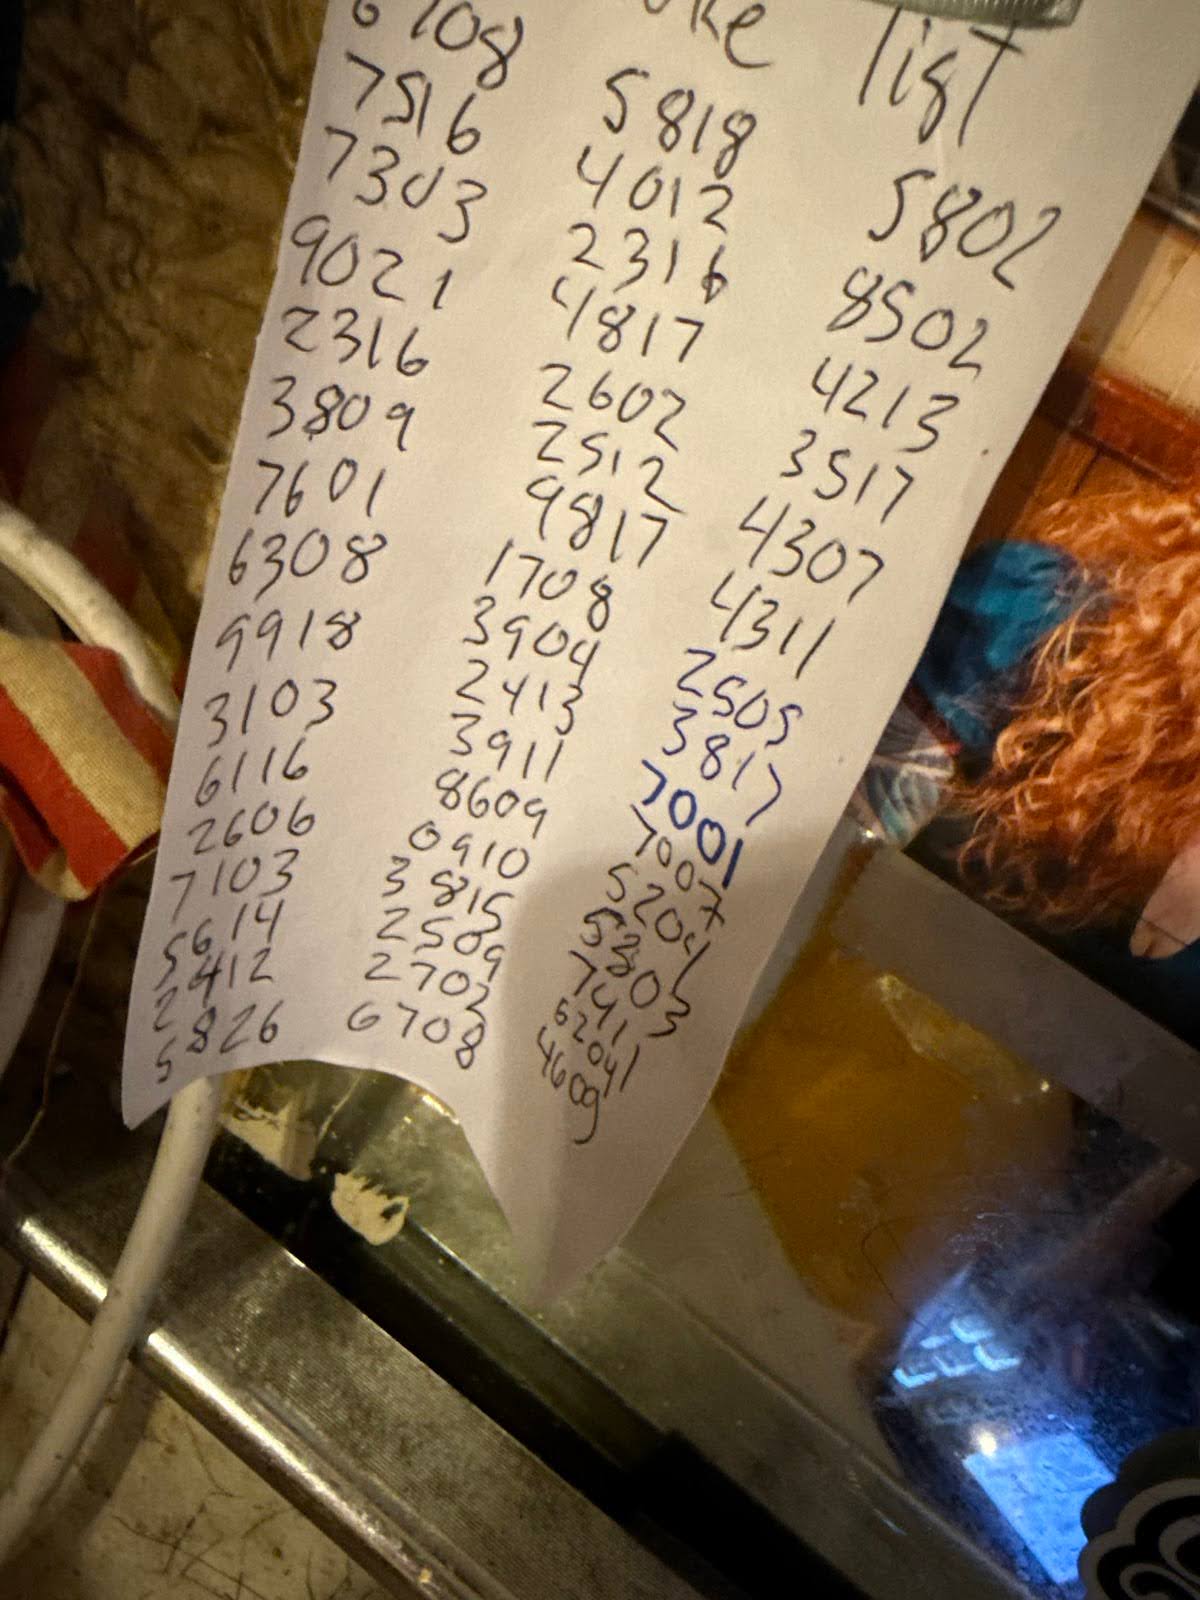 list
6708
7516
7303
9021
2316
3809
7601
6308
9918
3103
6116
2606
7103
5614
2412
5826
5818
4012
2316
4817
2602
2512
9817
1708
3904
2413
3911
8609
0910
3815
2509
2702
6708
5802
8502
4213
3517
4307
4311
2505
3817
7001
7007
5204
5803
7411
6204
4609